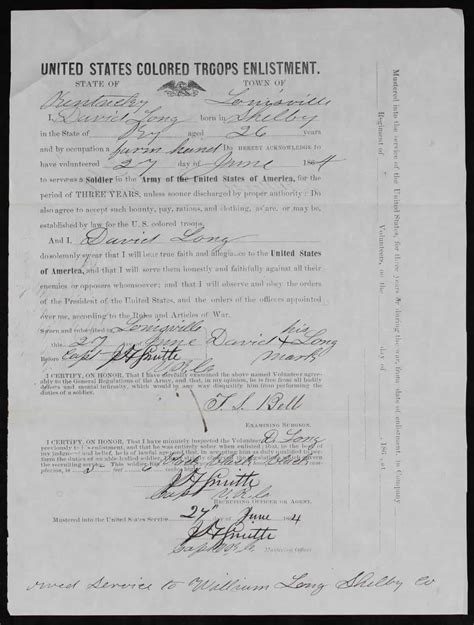 UNITED STATES COLORED TROOPS ENLISTMENT.
STATE OF TOWN OF
Kentucky Louisville
I, David Long born in Shelby
in the State of Ky aged 26 years
and by occupation a farm hand Do HEREBY ACKNOWLEDGE to
have volunteered this 27 day of June 1864
to serve as a Soldier in the Army of the United States of America, for the
period of THREE YEARS, unless sooner discharged by proper authority: Do
also agree to accept such bounty, pay, rations, and clothing, as are, or may be,
established by law for the U.S. colored troops.
And I, David Long
do solemnly swear that I will bear true faith and allegiance to the United States
of America, and that I will serve them honestly and faithfully against all their
enemies or opposers whomsoever; and that I will observe and obey the orders
of the President of the United States, and the orders of the officers appointed
over me, according to the Rules and Articles of War.
Sworn and subscribed to, at Louisville
this 27 June David his x mark Long
Before Capt
I CERTIFY, ON HONOR, That I have carefully examined the above named Volunteer agreeably
to the General Regulations of the Army, and that, in my opinion, he is free from all bodily
defects and mental infirmity, which would in any way disqualify him from performing the
duties of a soldier.
T. S. Bell
EXAMINING SURGEON.
I CERTIFY, ON HONOR, That I have minutely inspected the Volunteer, D. Long
previously to his enlistment, and that he was entirely sober when enlisted; that, to the best of
my judgment and belief, he is of lawful age
duties of an able-bodied soldier
recruiting service.
black black
RECRUITING OFFICER OR AGENT.
Mustered into the United States Service 27" June 4
Capt
Mustering Officer
owed service to William Long Shelby Co
Mustered into the service of the United States, for three years or during the war, from date of enlistment, in Company
Regiment of Volunteers, on the day of 186 , at